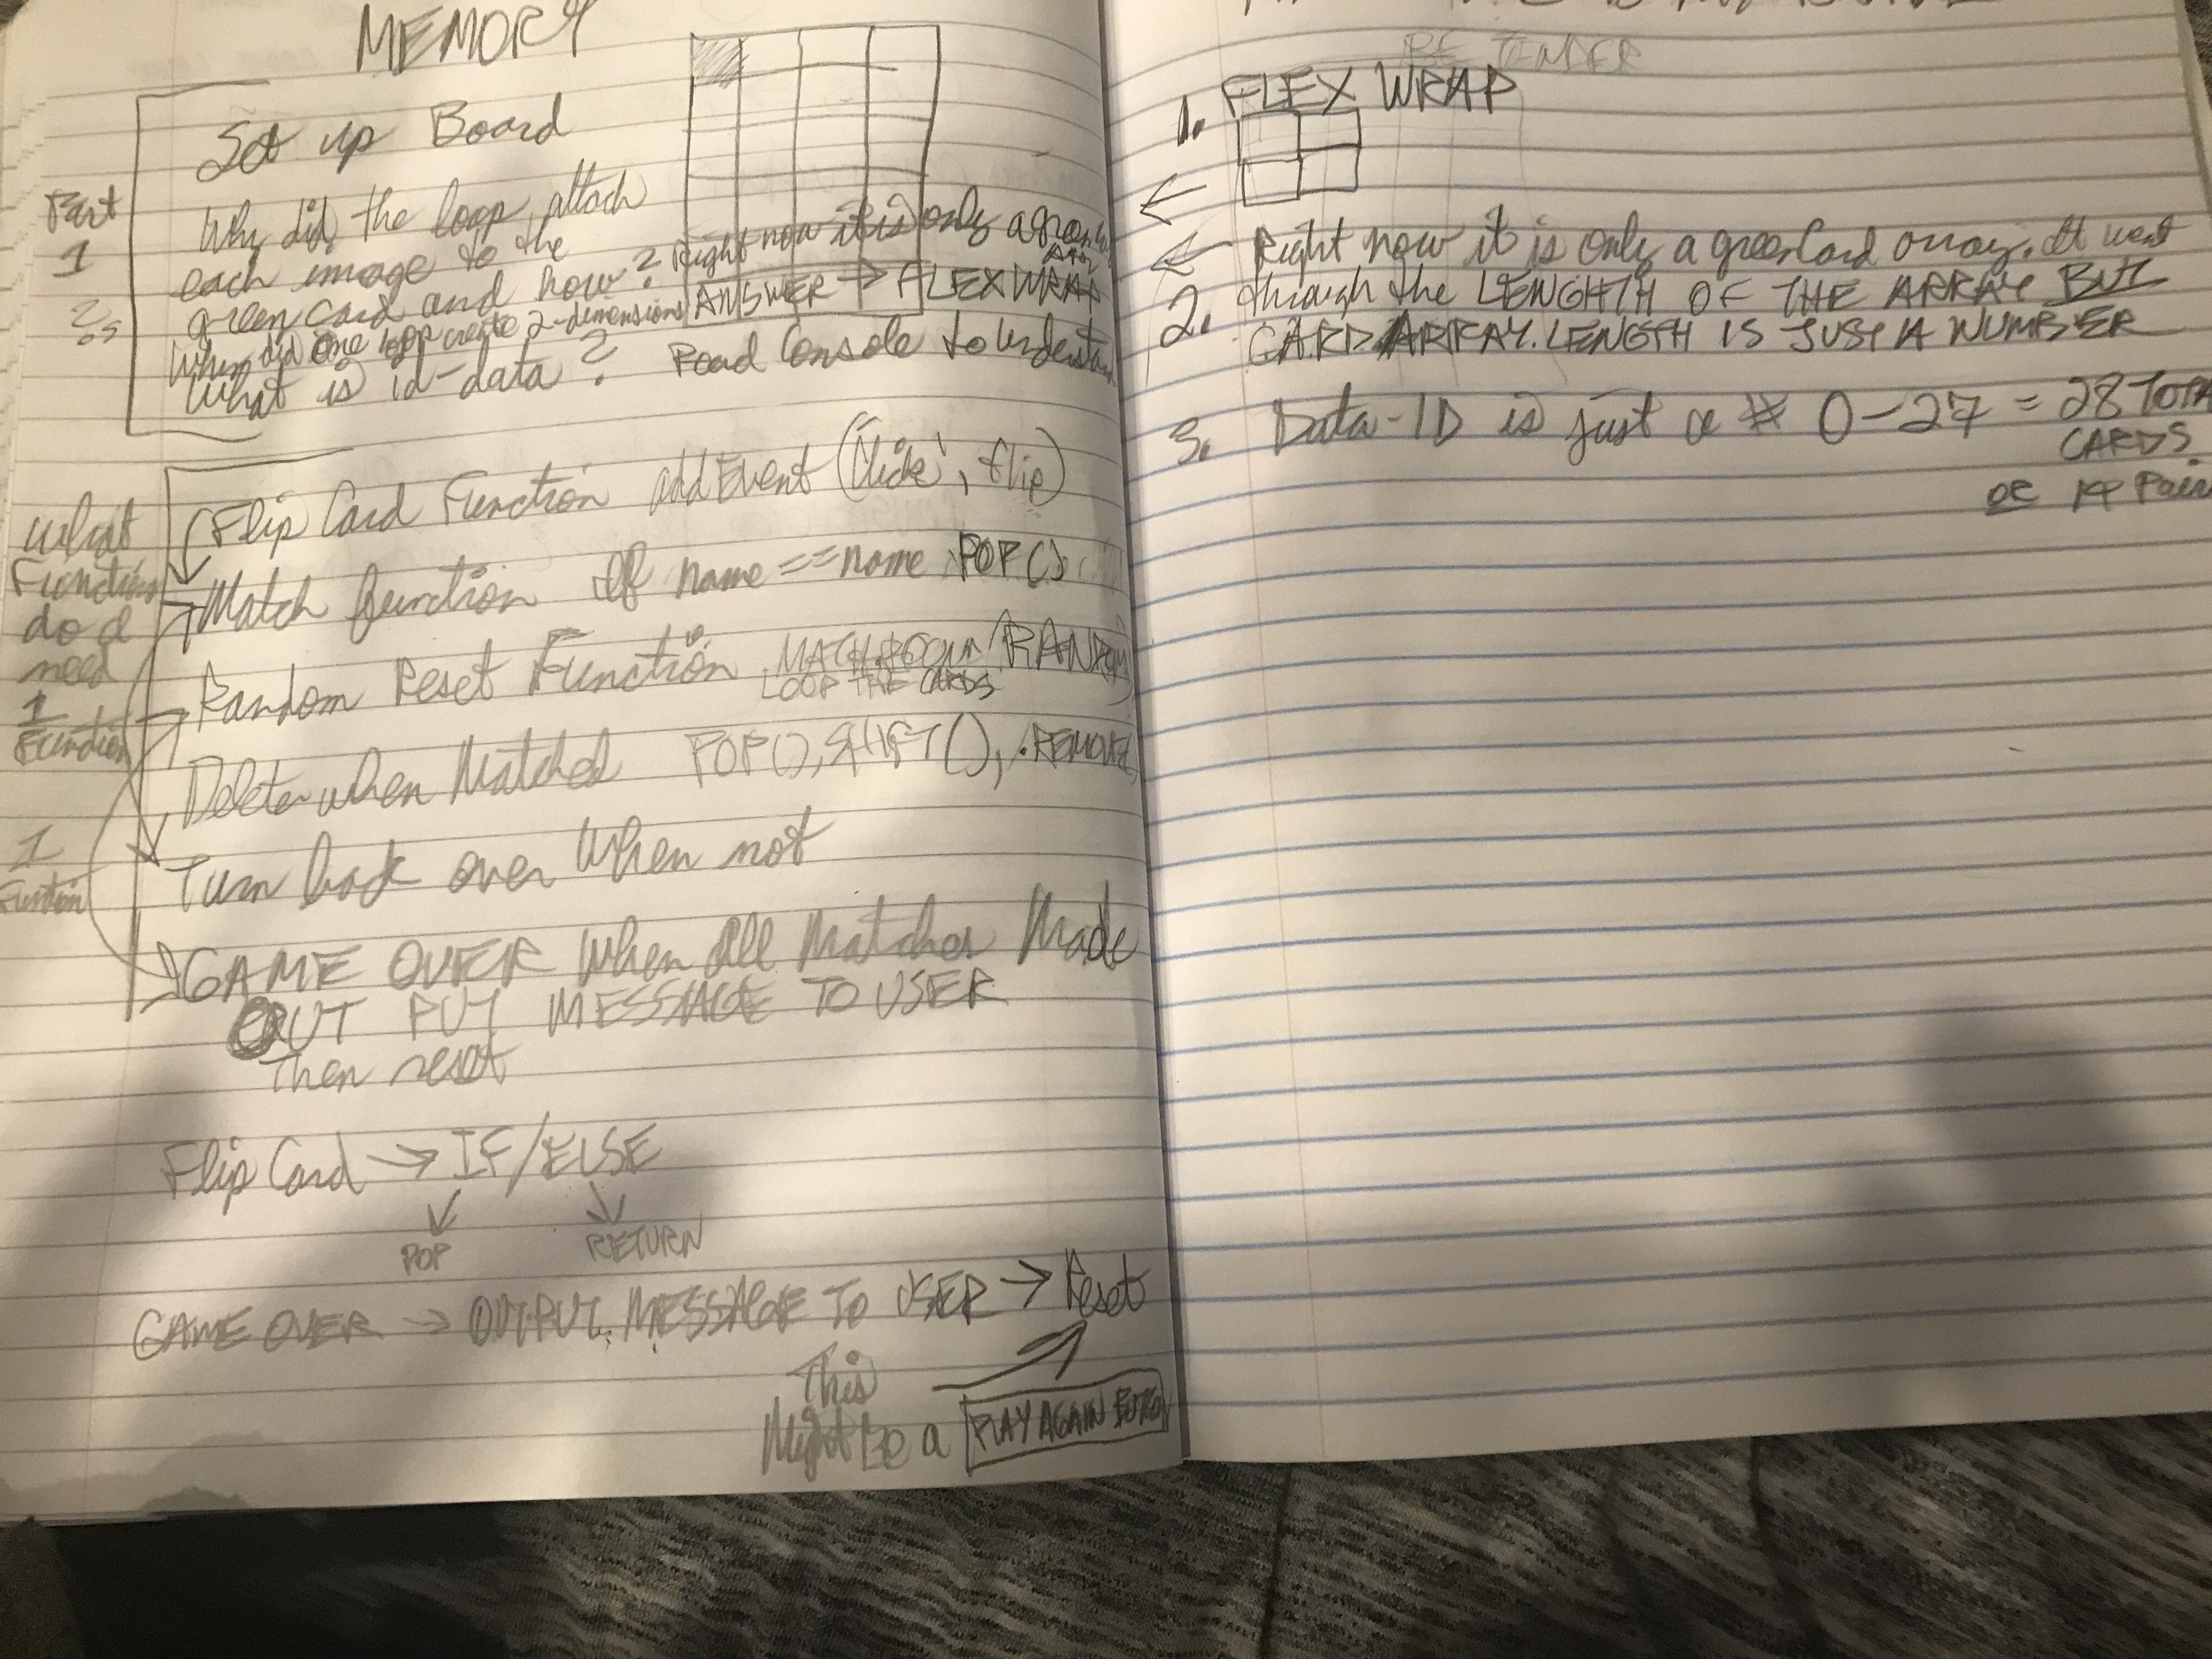 MEMORY
Set up Board
Part
1
?s
Why did the loop attach
each image to the
green card and how? Right now it is only a green card
Array
When did one loop create 2-dimensions ANSWER → FLEX WRAP
What is id-data? Read Console to Understand
What
Functions
do I
need
1
Function
1
Function
Flip Card Function addEvent ('Click', flip)
Match function If name == name POP()
Random Reset Function MATH.ROOM (RANDOM)
LOOP THE CARDS
Delete when Matched POP(), SHIFT(), .REMOVE
Turn back over When not
GAME OVER When All Matches Made
OUT PUT MESSAGE TO USER
Then reset
Flip Card → IF/ELSE
POP RETURN
GAME OVER → OUTPUT MESSAGE TO USER → Reset
This
Might Be a PLAY AGAIN BUTTON
BE TINDER
1. FLEX WRAP
← Right now it is only a greenCard array. It went
2. through the LENGHTH OF THE ARRAY BUT
CARDARRAY.LENGTH IS JUST A NUMBER
3. Data-ID is just a # 0-27 = 28 TOTAL
CARDS
OR 14 Pairs